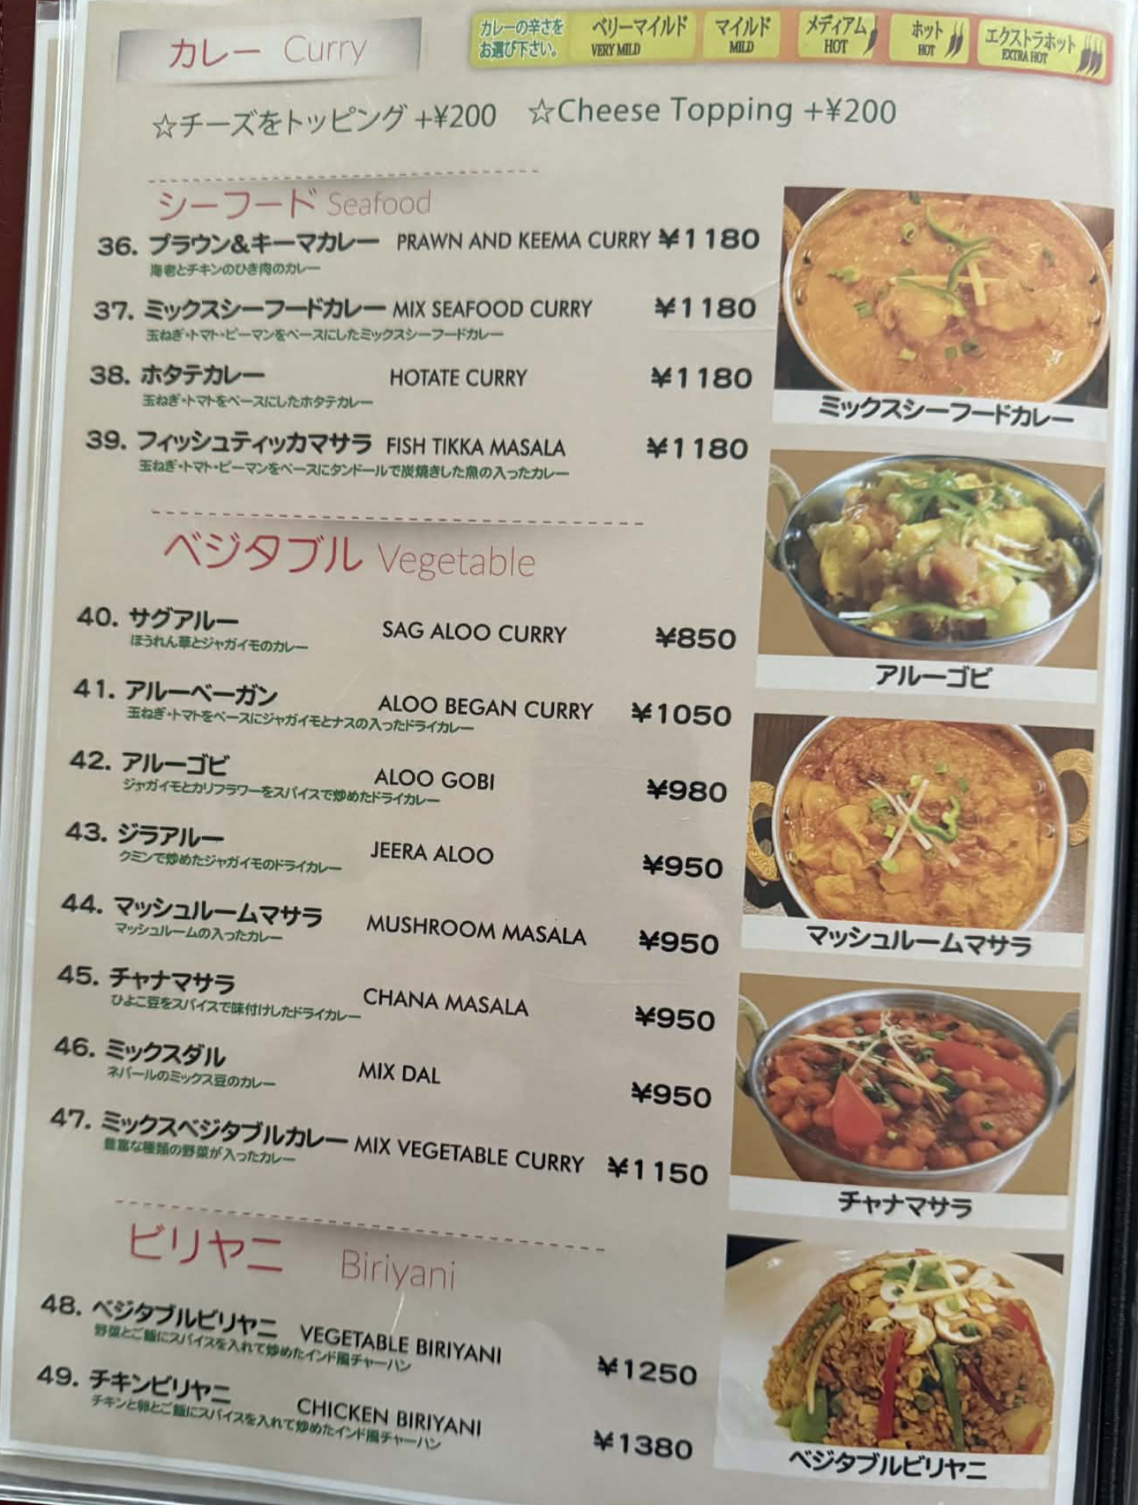 カレー Curry
カレーの辛さを
お選び下さい。
ベリーマイルド
VERY MILD
マイルド
MILD
メディアム
HOT
ホット
HOT
エクストラホット
EXTRA HOT
☆チーズをトッピング +¥200 ☆Cheese Topping +¥200
シーフード Seafood
36. プラウン&キーマカレー PRAWN AND KEEMA CURRY ¥1180
海老とチキンのひき肉のカレー
37. ミックスシーフードカレー MIX SEAFOOD CURRY ¥1180
玉ねぎ・トマト・ピーマンをベースにしたミックスシーフードカレー
38. ホタテカレー HOTATE CURRY ¥1180
玉ねぎ・トマトをベースにしたホタテカレー
39. フィッシュティッカマサラ FISH TIKKA MASALA ¥1180
玉ねぎ・トマト・ピーマンをベースにタンドールで炭焼きした魚の入ったカレー
ミックスシーフードカレー
ベジタブル Vegetable
40. サグアルー SAG ALOO CURRY ¥850
ほうれん草とジャガイモのカレー
41. アルーベーガン ALOO BEGAN CURRY ¥1050
玉ねぎ・トマトをベースにジャガイモとナスの入ったドライカレー
42. アルーゴビ ALOO GOBI ¥980
ジャガイモとカリフラワーをスパイスで炒めたドライカレー
43. ジラアルー JEERA ALOO ¥950
クミンで炒めたジャガイモのドライカレー
44. マッシュルームマサラ MUSHROOM MASALA ¥950
マッシュルームの入ったカレー
45. チャナマサラ CHANA MASALA ¥950
ひよこ豆をスパイスで味付けしたドライカレー
46. ミックスダル MIX DAL ¥950
ネパールのミックス豆のカレー
47. ミックスベジタブルカレー MIX VEGETABLE CURRY ¥1150
豊富な種類の野菜が入ったカレー
アルーゴビ
マッシュルームマサラ
チャナマサラ
ビリヤニ Biriyani
48. ベジタブルビリヤニ VEGETABLE BIRIYANI ¥1250
野菜とご飯にスパイスを入れて炒めたインド風チャーハン
49. チキンビリヤニ CHICKEN BIRIYANI ¥1380
チキンと卵とご飯にスパイスを入れて炒めたインド風チャーハン
ベジタブルビリヤニ